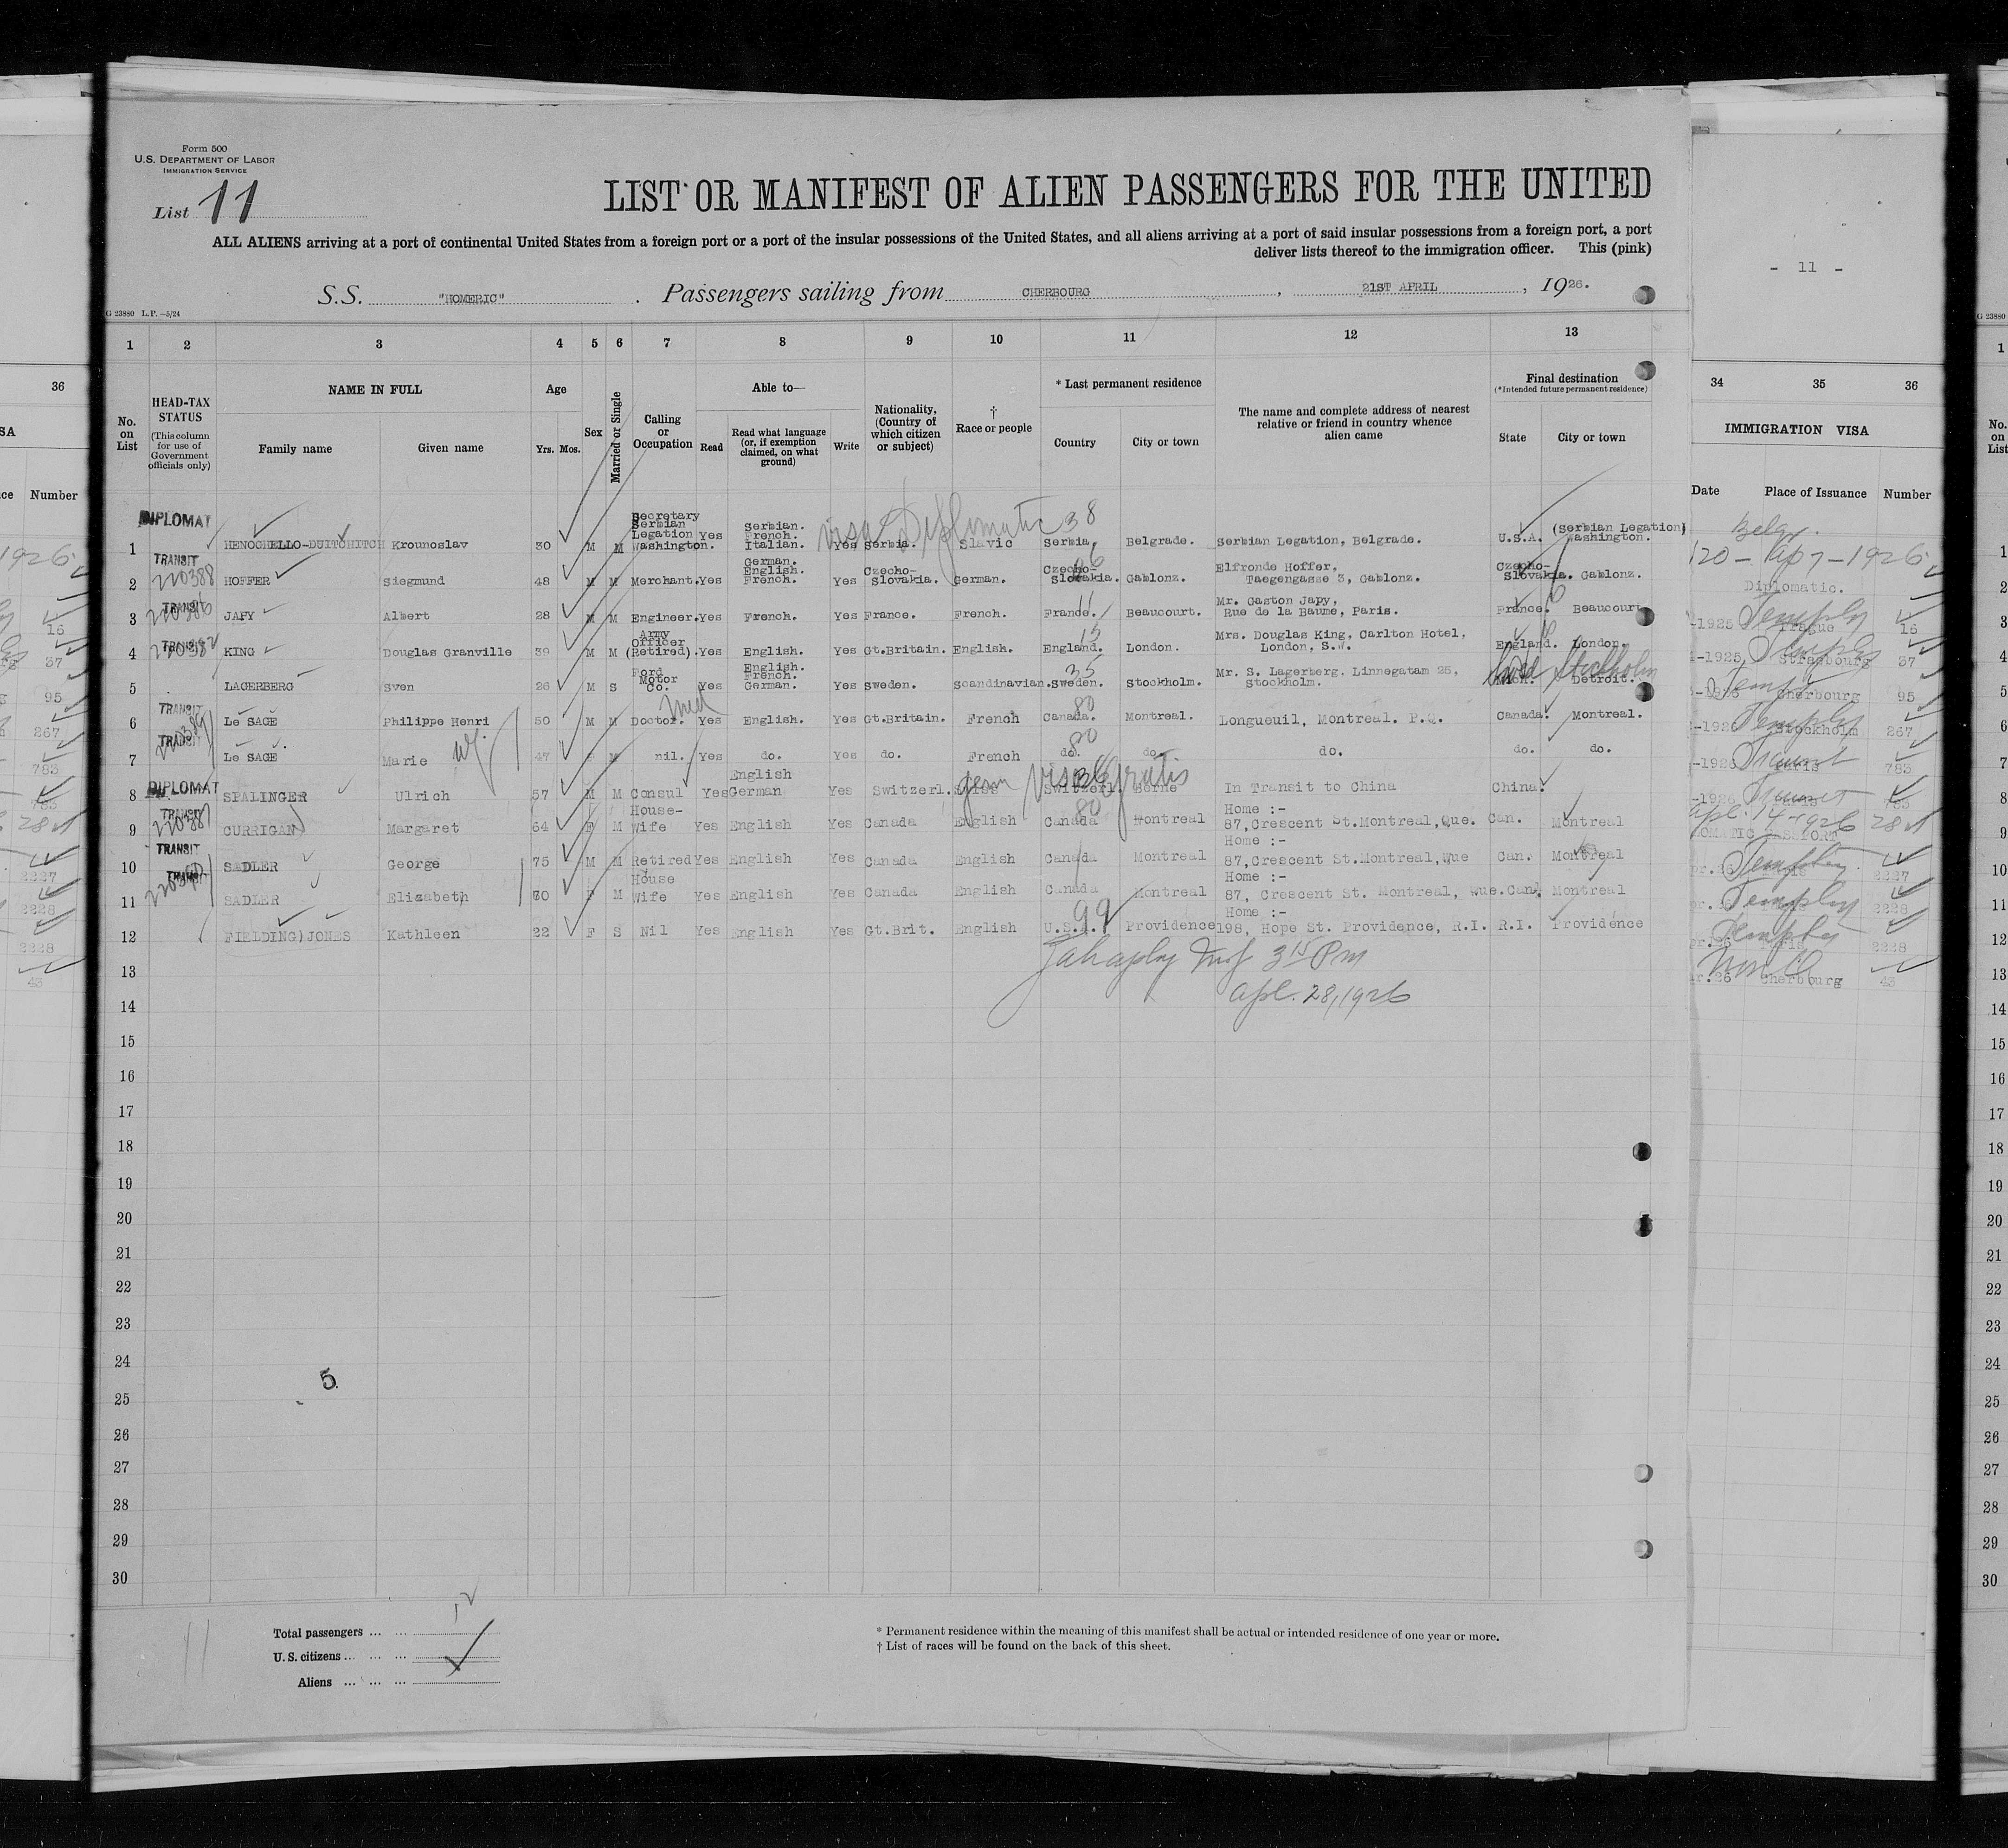 Form 500
U.S. DEPARTMENT OF LABOR
IMMIGRATION SERVICE
List 11
LIST OR MANIFEST OF ALIEN PASSENGERS FOR THE UNITED
ALL ALIENS arriving at a port of continental United States from a foreign port or a port of the insular possessions of the United States, and all aliens arriving at a port of said insular possessions from a foreign port, a port
deliver lists thereof to the immigration officer. This (pink)
- 11 -
S.S. "HOMERIC" . Passengers sailing from CHERBOURG , 21ST APRIL , 1926.
G 23880 L.P. —5/24
1 2 3 4 5 6 7 8 9 10 11 12 13
34 35 36
No. on List
HEAD-TAX STATUS
(This column for use of Government officials only)
NAME IN FULL
Family name Given name
Age
Yrs. Mos.
Sex
Married or Single
Calling or Occupation
Able to—
Read
Read what language (or, if exemption claimed, on what ground)
Write
Nationality, (Country of which citizen or subject)
† Race or people
* Last permanent residence
Country City or town
The name and complete address of nearest relative or friend in country whence alien came
Final destination
(*Intended future permanent residence)
State City or town
IMMIGRATION VISA
Date Place of Issuance Number
1 DIPLOMAT HENOCHELLO-DUITCHITCH Krounoslav 30 M M Secretary Serbian Legation Washington. Yes Serbian. French. Italian. Yes Serbia. Slavic Serbia. Belgrade. Serbian Legation, Belgrade. U.S.A. (Serbian Legation) Washington.
Visa Diplomatic 38
2 TRANSIT 220388 HOFFER Siegmund 48 M M Merchant. Yes German. English. French. Yes Czecho-Slovakia. German. Czecho-Slovakia. Gablonz. Elfronde Hoffer, Taegengasse 3, Gablonz. Czecho-Slovakia. Gablonz.
3 TRANSIT JAPY Albert 28 M M Engineer. Yes French. Yes France. French. France. Beaucourt. Mr. Gaston Japy, Rue de la Baume, Paris. France. Beaucourt
4 TRANSIT KING Douglas Granville 39 M M Army Officer (Retired). Yes English. Yes Gt.Britain. English. England. London. Mrs. Douglas King, Carlton Hotel, London, S.W. England. London.
5 LAGERBERG Sven 26 M S Ford Motor Co. Yes English. French. German. Yes Sweden. Scandinavian. Sweden. Stockholm. Mr. S. Lagerberg. Linnegatam 25, Stockholm. Mich. Detroit.
35 Stockholm
6 TRANSIT Le SAGE Philippe Henri 50 M M Doctor. Yes English. Yes Gt.Britain. French Canada. Montreal. Longueuil, Montreal. P.Q. Canada. Montreal.
Med 80
7 TRANSIT Le SAGE Marie 47 F M nil. Yes do. Yes do. French do. do. do. do. do.
80
8 DIPLOMAT SPALINGER Ulrich 57 M M Consul Yes English German Yes Switzerl. Swiss Switzerl. Berne In Transit to China China.
Visa Gratis
9 TRANSIT CURRIGAN Margaret 64 F M House-Wife Yes English Yes Canada English Canada Montreal Home :- 87, Crescent St. Montreal, Que. Can. Montreal
80
10 TRANSIT SADLER George 75 M M Retired Yes English Yes Canada English Canada Montreal Home :- 87, Crescent St. Montreal, Que Can. Montreal
11 TRANSIT SADLER Elizabeth 70 F M House Wife Yes English Yes Canada English Canada Montreal Home :- 87, Crescent St. Montreal, Que. Can. Montreal
12 FIELDING)JONES Kathleen 22 F S Nil Yes English Yes Gt.Brit. English U.S.A. Providence Home :- 198, Hope St. Providence, R.I. R.I. Providence
99
13
3 15 Pm
14
Apl. 28, 1926
15
16
17
18
19
20
21
22
23
24
5
25
26
27
28
29
30
120 - Ap 7 - 1926
Diplomatic.
-1925 Prague 16
-1925 Strasbourg 37
Cherbourg 95
-1926 Stockholm 267
-1926 Paris 783
-1926 783
Apl. 14 - 1926 28
2227
2228
2228
Cherbourg 43
11
Total passengers ... 12
U. S. citizens ...
Aliens ...
* Permanent residence within the meaning of this manifest shall be actual or intended residence of one year or more.
† List of races will be found on the back of this sheet.